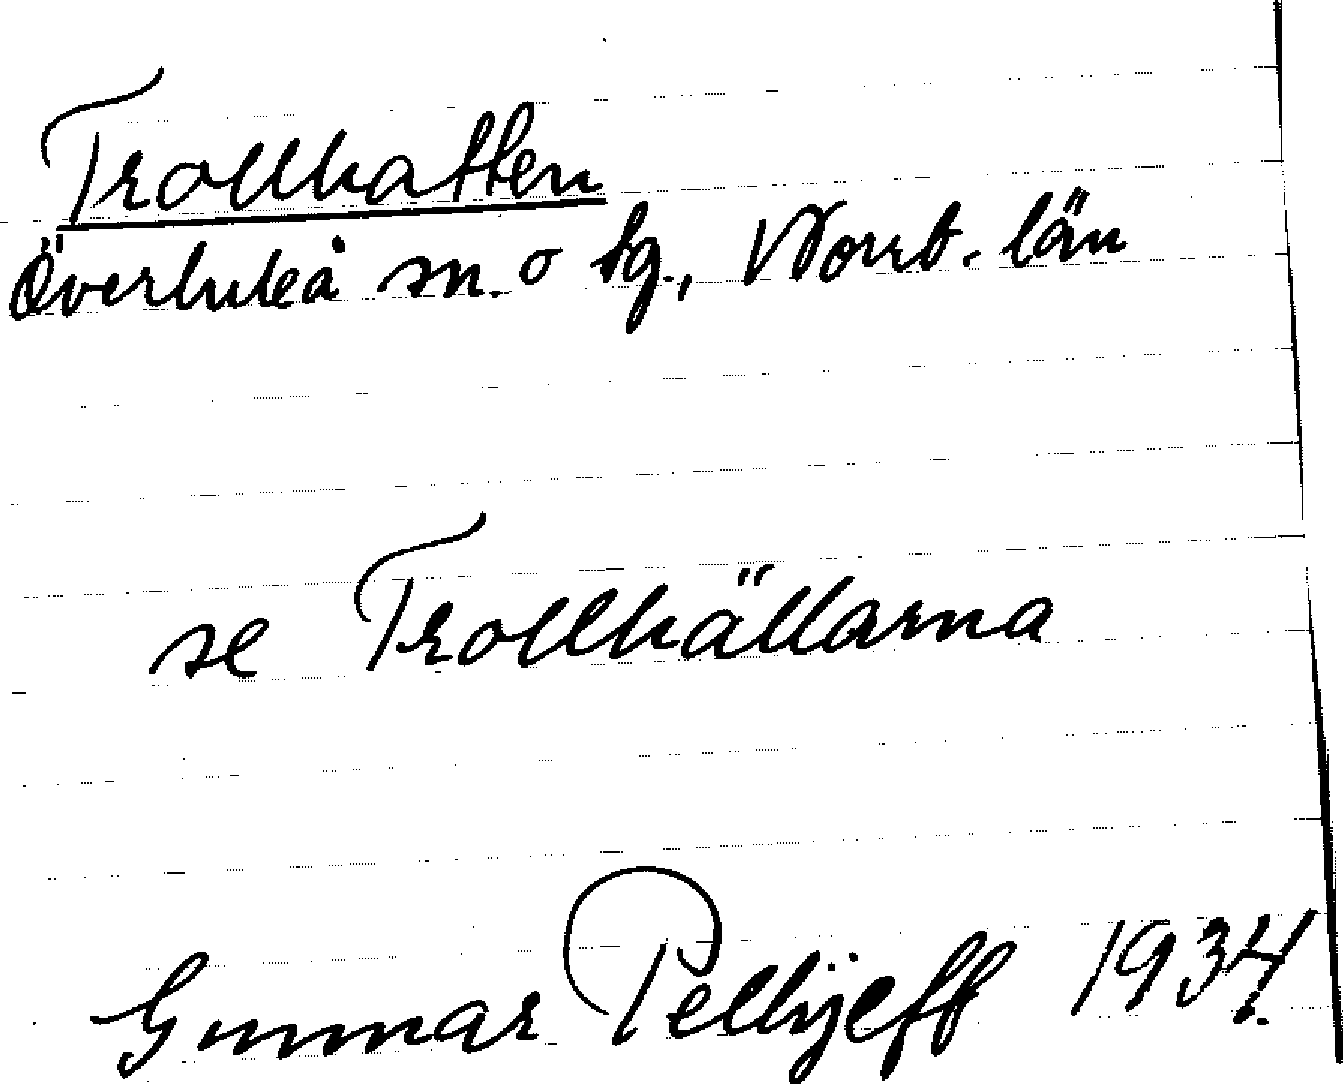 Trollhatten
Överluleå sn. o tg., Norrb. län
se Trollhällarna
Gunnar Pellijeff 1934.